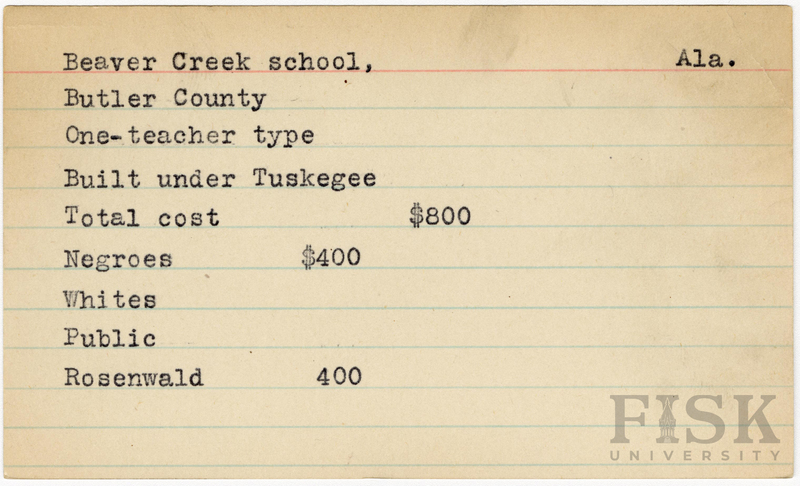 Beaver Creek school, Ala.
Butler County
One-teacher type
Built under Tuskegee
Total cost $800
Negroes $400
Whites
Public
Rosenwald 400
FISK
UNIVERSITY